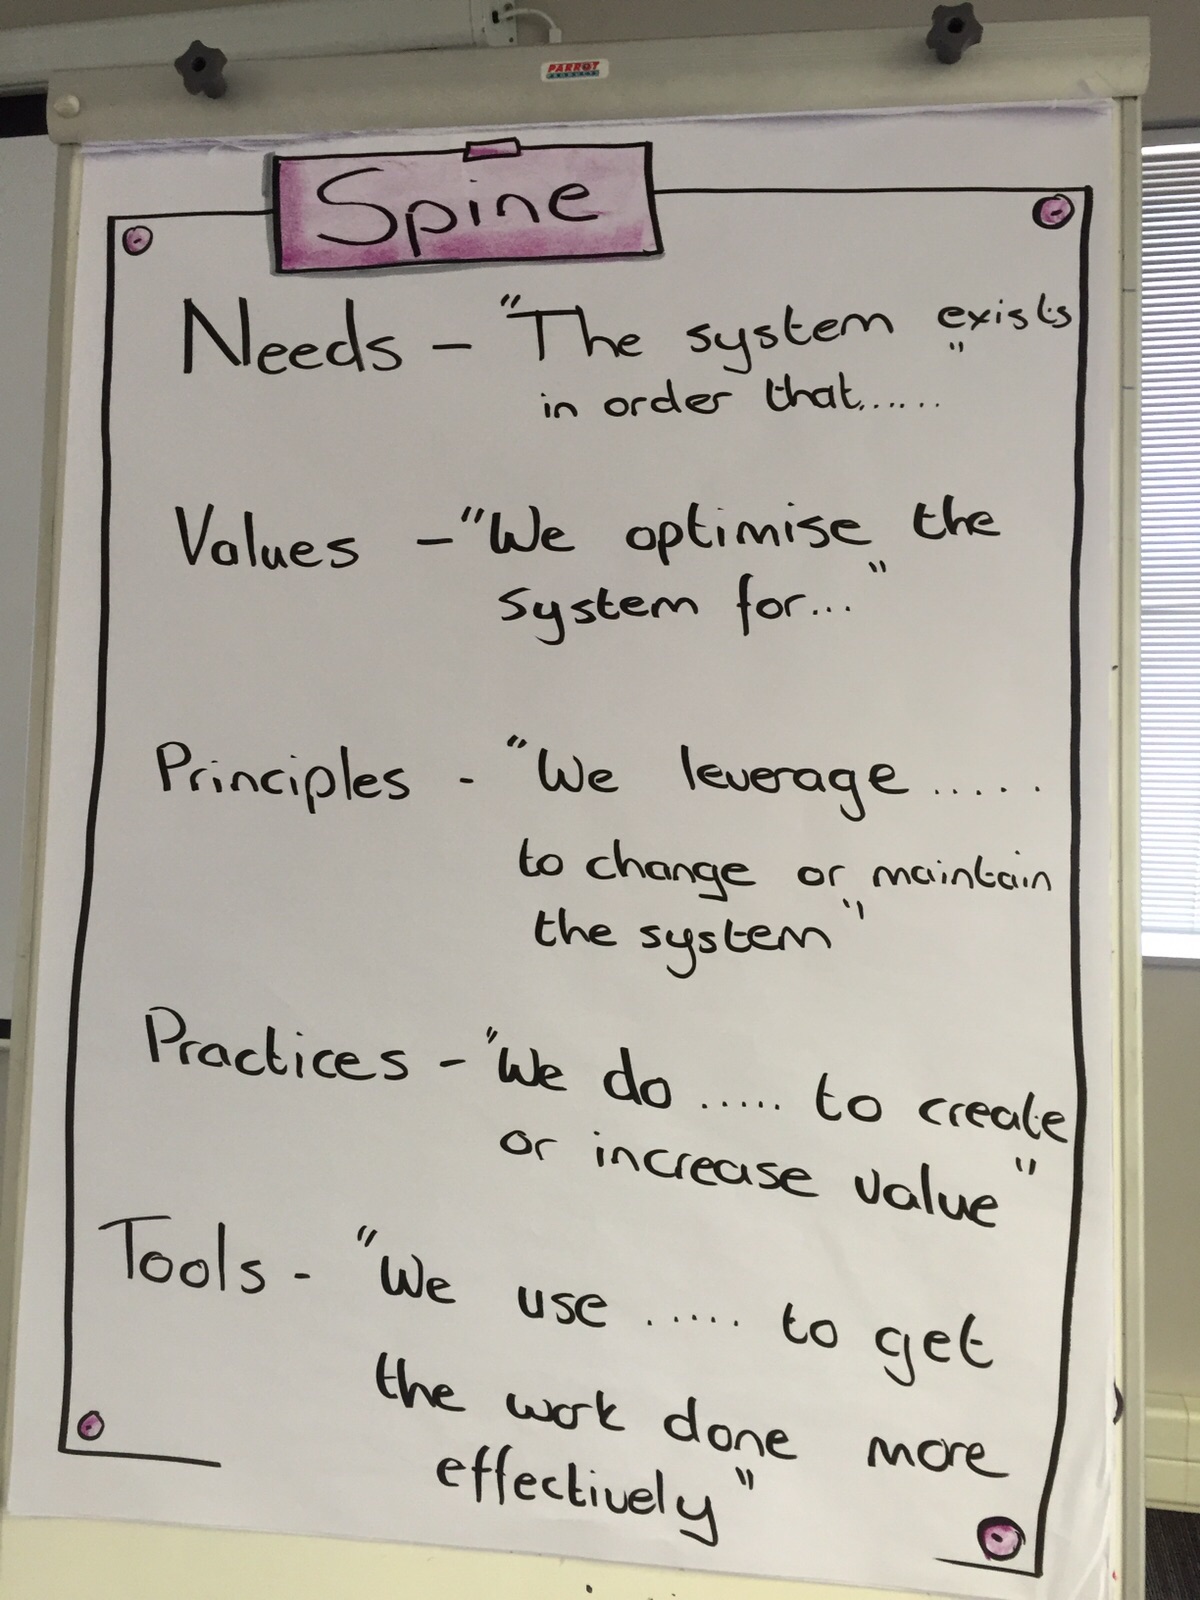 PARROT
Spine
Needs - "The system exists
in order that......"
Values - "We optimise the
system for..."
Principles - "We leverage .....
to change or maintain
the system"
Practices - "We do ..... to create
or increase value"
Tools - "We use ..... to get
the work done more
effectively"